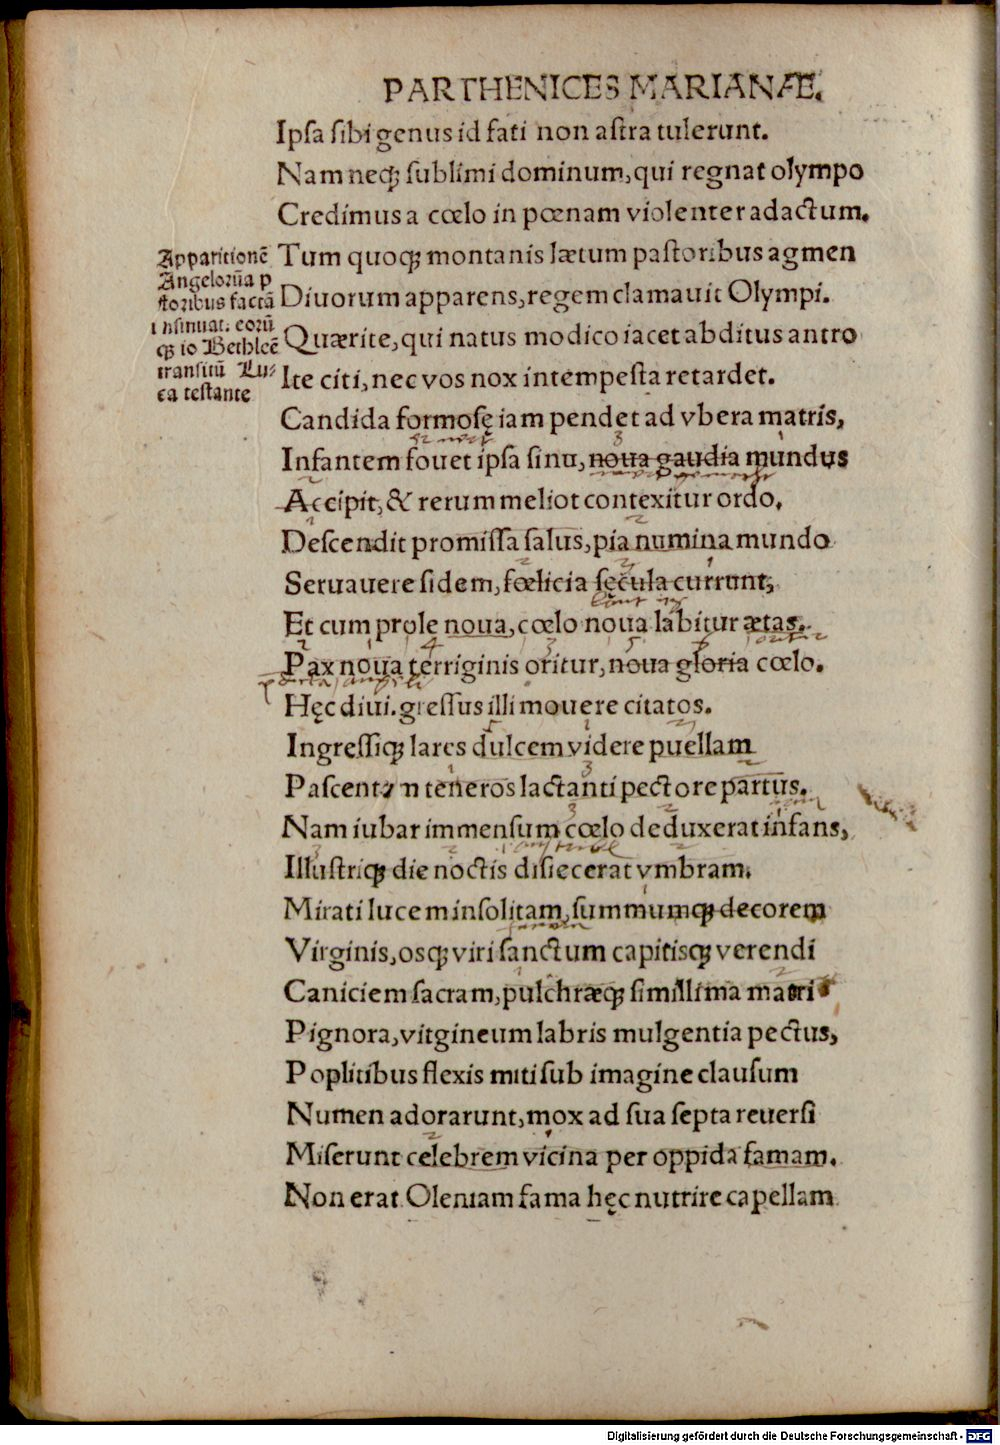 PARTHENICES MARIANÆ.
Ipsa sibi genus id fati non astra tulerunt.
Nam neqꝫ sublimi dominum, qui regnat olympo
Credimus a cœlo in pœnam violenter adactum.
Tum quoqꝫ montanis lætum pastoribus agmen
Diuorum apparens, regem clamauit Olympi.
Quærite, qui natus modico iacet abditus antro
Ite citi, nec vos nox intempesta retardet.
Candida formosę iam pendet ad vbera matris,
Infantem fouet ipsa sinu, noua gaudia mundus
Accipit, & rerum meliot contexitur ordo.
Descendit promissa salus, pia numina mundo
Seruauere fidem, fœlicia sęcula currunt,
Et cum prole noua, cœlo noua labitur ætas.
Pax noua terriginis oritur, noua gloria cœlo.
Hęc diui. gressus illi mouere citatos.
Ingressiqꝫ lares dulcem videre puellam
Pascentem teneros lactanti pectore partus.
Nam iubar immensum cœlo deduxerat infans,
Illustriqꝫ die noctis disiecerat vmbram.
Mirati lucem insolitam, summumqꝫ decorem
Virginis, osqꝫ viri sanctum capitisqꝫ verendi
Caniciem sacram, pulchræqꝫ simillima matri
Pignora, vitgineum labris mulgentia pectus,
Poplitibus flexis miti sub imagine clausum
Numen adorarunt, mox ad sua septa reuersi
Miserunt celebrem vicina per oppida famam.
Non erat Oleniam fama hęc nutrire capellam
Apparitionē
Angelorūa p
storibus factā
insinuat. eorū
qꝫ io Bethleē
transitū Lu⸗
ca testante
Digitalisierung gefördert durch die Deutsche Forschungsgemeinschaft - DFG